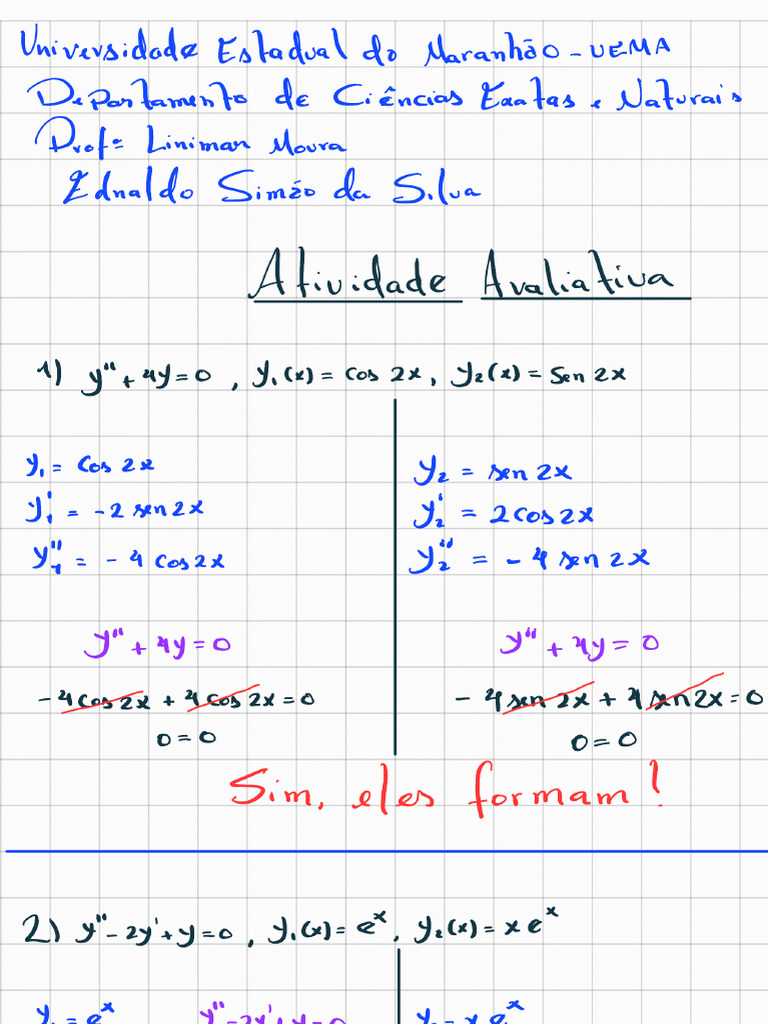 Universidade Estadual do Maranhão - UEMA
Departamento de Ciências Exatas e Naturais
Profº Liniman Moura
Ednaldo Simão da Silva
Atividade Avaliativa
1) y" + 4y = 0 , y₁(x) = cos 2x, y₂(x) = Sen 2x
y₁ = cos 2x
y₁' = -2 sen 2x
y₁" = - 4 cos 2x
y" + 4y = 0
- 4 cos 2x + 4 cos 2x = 0
0 = 0
y₂ = sen 2x
y₂' = 2 cos 2x
y₂" = - 4 sen 2x
y" + 4y = 0
- 4 sen 2x + 4 sen 2x = 0
0 = 0
Sim, eles formam!
2) y" - 2y' + y = 0 , y₁(x) = eˣ , y₂(x) = x eˣ
y₁ = eˣ
y" - 2y' + y = 0
y₂ = x eˣ